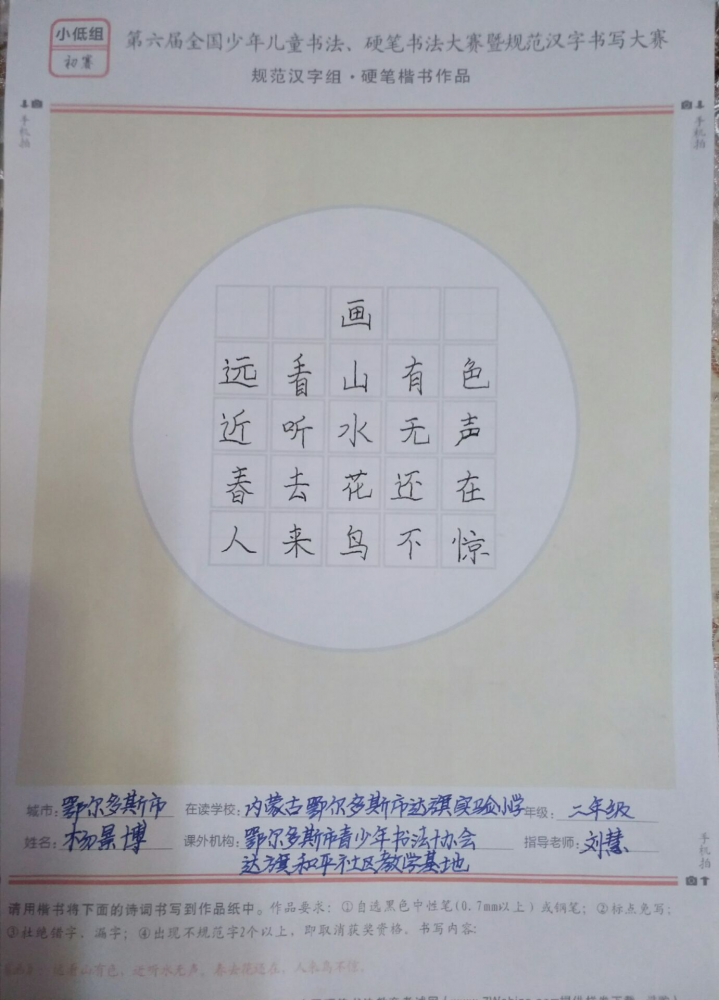 小低组
初赛
第六届全国少年儿童书法、硬笔书法大赛暨规范汉字书写大赛
规范汉字组·硬笔楷书作品
手机拍
手机拍
画
远看山有色
近听水无声
春去花还在
人来鸟不惊
城市: 鄂尔多斯市 在读学校: 内蒙古鄂尔多斯市达旗实验小学 年级: 二年级
姓名: 杨景博 课外机构: 鄂尔多斯市青少年书法协会 指导老师: 刘慧
达旗和平社区教学基地
手机拍
请用楷书将下面的诗词书写到作品纸中。作品要求: ①自选黑色中性笔(0.7mm以上)或钢笔; ②标点免写;
③杜绝错字、漏字; ④出现不规范字2个以上, 即取消获奖资格。书写内容:
远看山有色, 近听水无声。春去花还在, 人来鸟不惊。